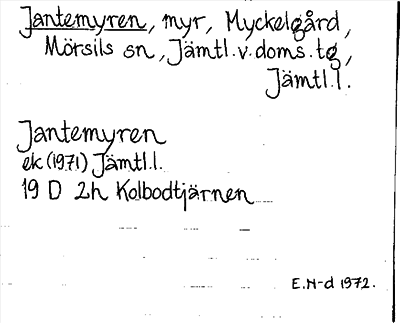 Jantemyren, myr, Myckelgård,
Mörsils sn, Jämtl.v.doms.tg,
Jämtl.l.
Jantemyren
ek (1971) Jämtl.l.
19 D 2h Kolbodtjärnen
E.N-d 1972.